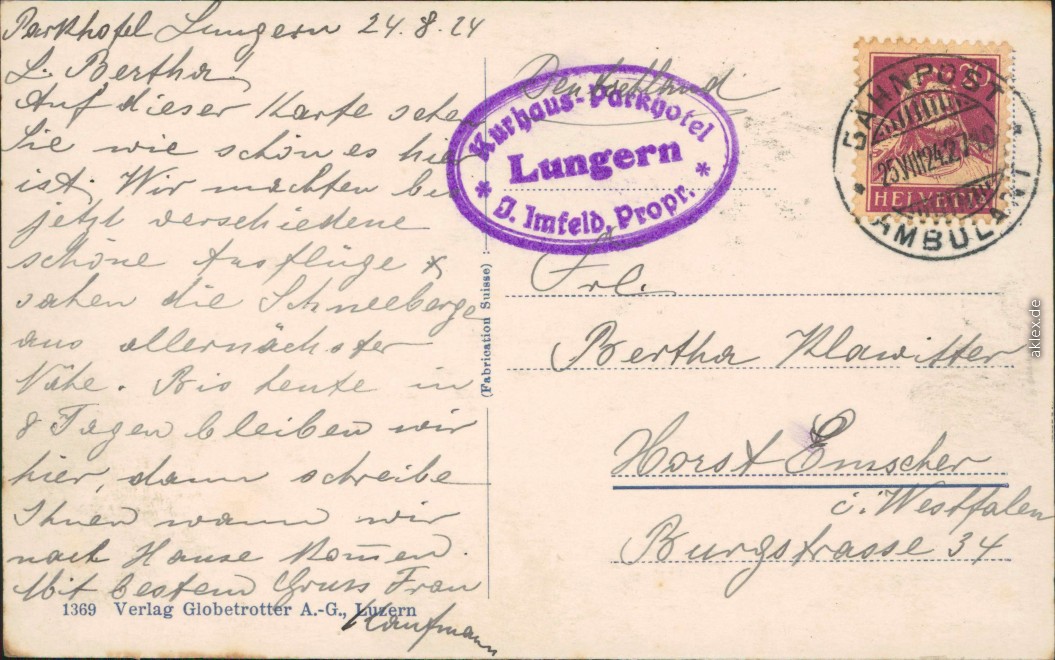 Parkhotel Lungern 24.8.24
L. Bertha!
Auf dieser Karte sehen
Sie wie schön es hier
ist. Wir machten bis
jetzt verschiedene
schöne Ausflüge &
sahen die Schneeberge
aus allernächster
Nähe. Bis heute in
8 Tagen bleiben wir
hier, dann schreibe
Ihnen wann wir
nach Hause kom̄en.
Mit bestem Gruss Frau
Kaufmann
1369 Verlag Globetrotter A.-G., Luzern
(Fabrication Suisse)
Kurhaus-Parkhotel
Lungern
* J. Imfeld, Propr. *
20
HELVETIA
BAHNPOST
25.VIII.24.
AMBULANT
Frl.
Bertha Klawitter
Horst Emscher
i. Westfalen
Burgstrasse 34
aklex.de